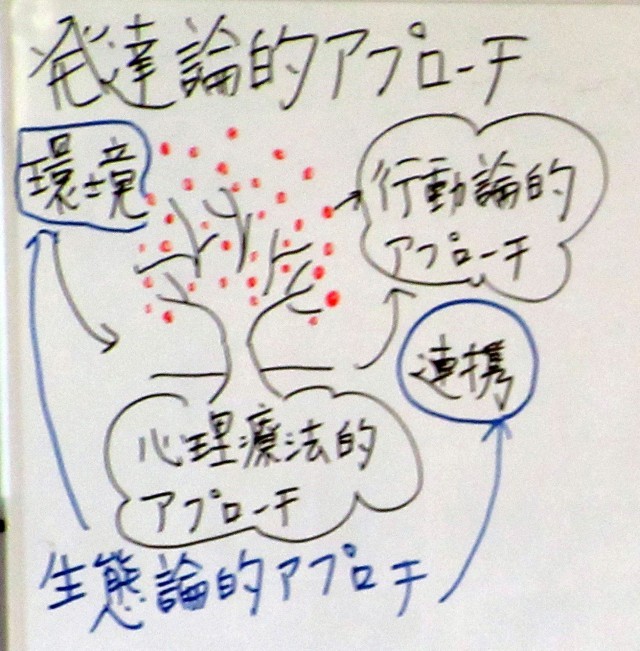 発達論的アプローチ
環境
行動論的
アプローチ
連携
心理療法的
アプローチ
生態論的アプローチ